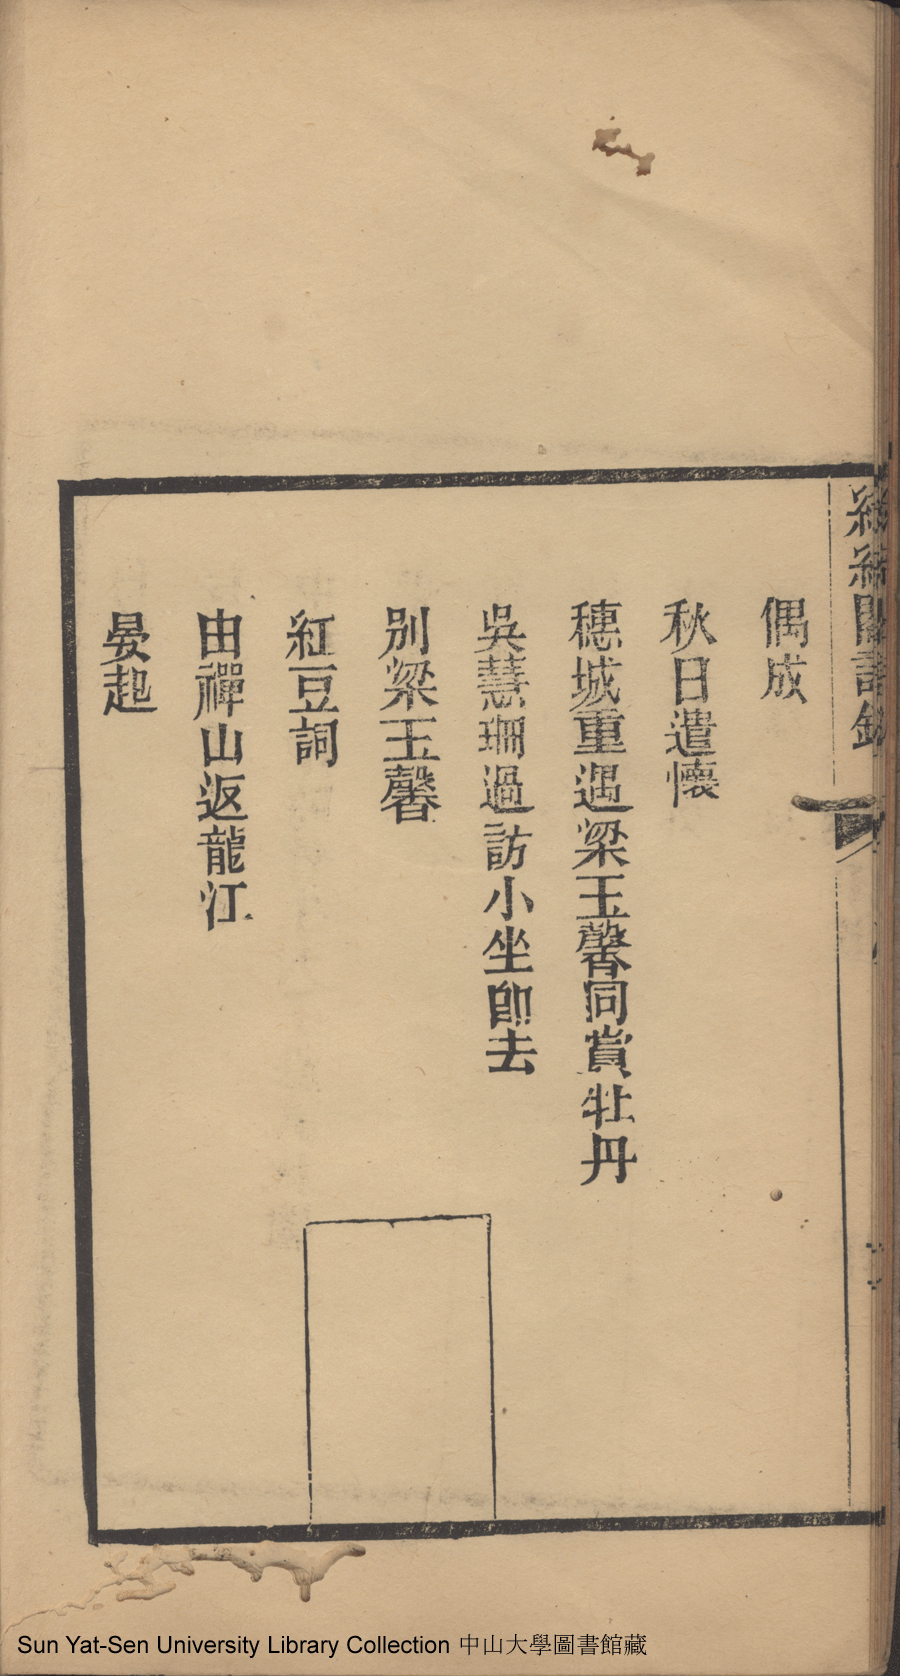 偶成
秋日遣懷
穗城重遇梁玉馨同賞牡丹
吳慧珊過訪小坐卽去
別梁玉馨
紅豆詞
由禪山返龍江
晏起
Sun Yat-Sen University Library Collection 中山大學圖書館藏